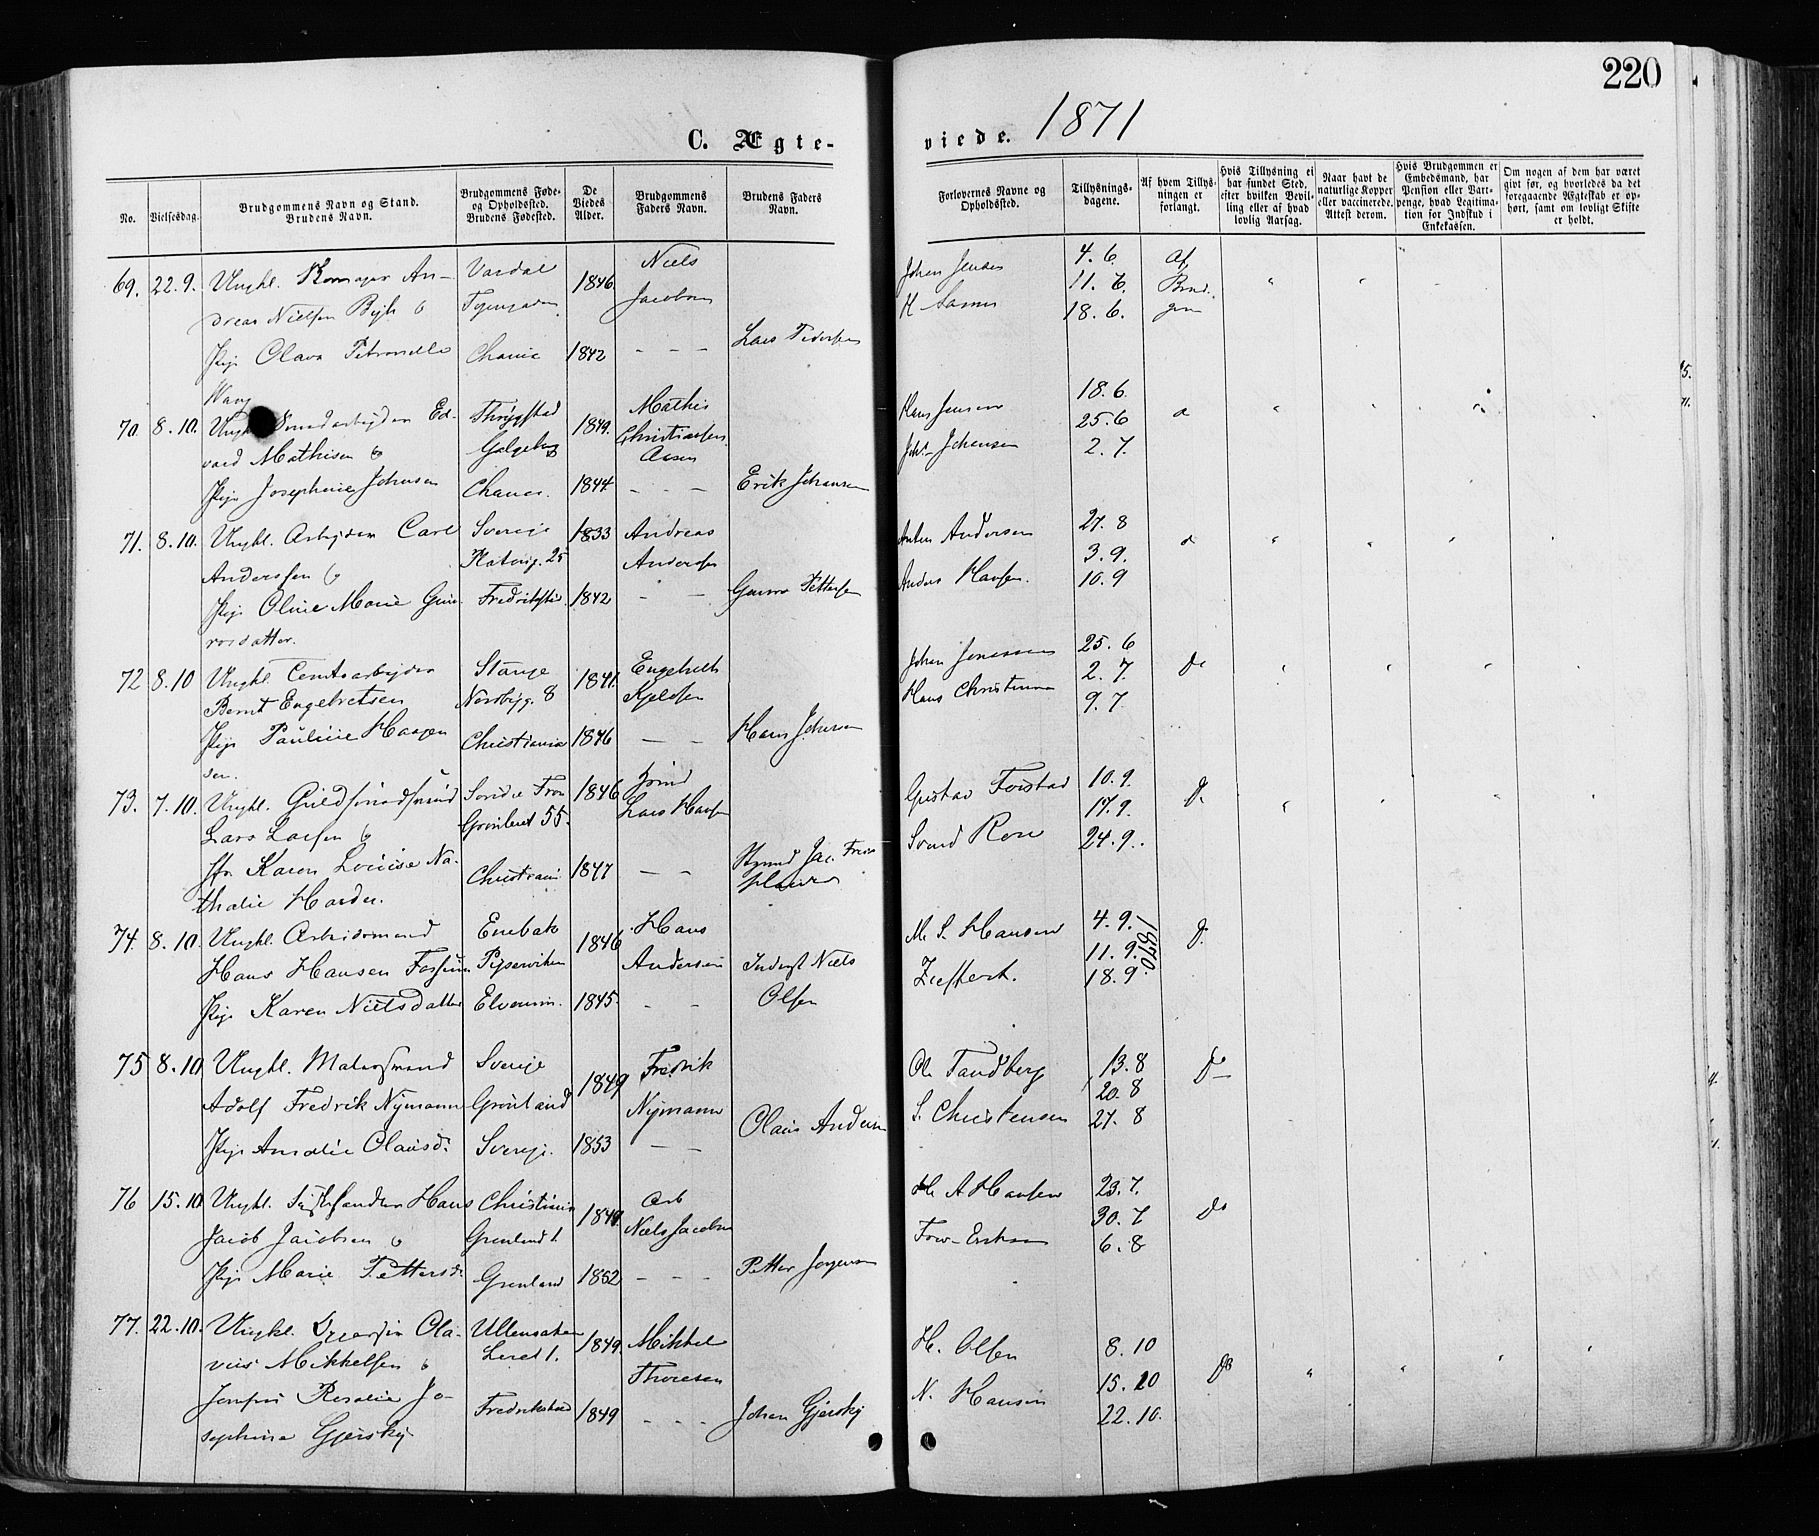 220
C. Ægte-
viede. 1871
No.
Vielsesdag.
Brudgommens Navn og Stand.
Brudens Navn.
Brudgommens Føde-
og Opholdssted.
Brudens Fødested.
De
Viedes
Alder.
Brudgommens
Faders Navn.
Brudens Faders
Navn.
Forlovernes Navne og
Opholdssted.
Tillysnings-
dagene.
Af hvem Tillys-
ningen er
forlangt.
Hvis Tillysning ei
har fundet Sted,
efter hvilken Bevil-
ling eller af hvad
lovlig Aarsag.
Naar havt de
naturlige Kopper
eller vaccinerede.
Attest derom.
Hvis Brudgommen er
Embedsmand, har
Pension eller Vart-
penge, hvad Legitima-
tion for Indskud i
Enkekassen.
Om nogen af dem har været
givt før, og hvorledes da det
foregaaende Ægteskab er op-
hørt, samt om lovligt Skifte
er holdt.
69. 22.9. Ungkl. An- Vardal 1846 Niels
dreas Nielsen & Jacobsen
Pige Olava Petronelle 1842 - - - Lars Pedersen
Wang
Johan Jensen 4.6. Af
11.6. Brud-
18.6. gom
70. 8.10. Ungkl. Ed- Thrygstad 1849. Mathis
vard Mathisen & Galgeberg Christiansen
Aasen
Pige Josephine Johnsen 1844 - - - Erik Johansen
Hans Jensen 18.6.
25.6
Johansen 2.7.
71. 8.10. Ungkl. Arbejder Carl Sverige 1833 Andreas
Anderssen & 25 Andersen
Pige Oline Marie Gun- Fredrikstad 1842 - - Pettersen
rosdatter.
Anton Andersen 27.8
3.9.
Anders Hansen. 10.9
72 8.10 Ungkl. Stange 1841. Engebrett
Bernt Engebretsen Nordbyg. 8 Kjeldsen
Pige Pauline Haagen- Christiania 1846 - - Hans Johnsen
sen.
Johan Jonassen 25.6
2.7. Do
Hans Christensen 9.7.
73. 7.10. Ungkl. Guldsmedsvend Søndre Fron 1846
Lars Larsen & Grønleret 55. Lars Hansen
Jfr. Karen Lovise Na- Christiania 1847 - -
thalie Harder.
Gustav Forstad 10.9.
17.9.
24.9.
74. 8.10. Ungkl. Arbeidsmand Enebak 1846 Hans
Hans Hansen Fossum Pipervirken Andersen Inderst Niels
Pige Karen Nielsdatter Elverum. 1845. - - Olsen
M. S. Hansen 4.9.
11.9. 1870
18.9.
75 8.10 Ungkl. Malersvend Sverige 1849 Fredrik
Adolf Fredrik Nymann Grønland Nymann
Pige Amalie Olausd. Sverige. 1853 - Olaus Andersen
Ole Tandberg 13.8 Do
20.8
S. Christensen 27.8
76 15.10 Ungkl. Hans Christiania 1849. Arb
Jacob Jacobsen & Grønland 1. Niels Jacobsen
Pige Marie Pettersd. Grønland 1852 - - - Petter Jørgensen
A Hansen 23.7.
30.7 Do
6.8
77. 22.10. Ungkl. Ola- Ullensaker 1849. Mikkel
vus Mikkelsen & Leret 1. Thoresen
Jomfru Rosalie Jo- Fredrikstad 1849 - - - Johan Gjersky
sephine Gjersky
H. Olsen 8.10
N. Hansen 15.10
22.10.